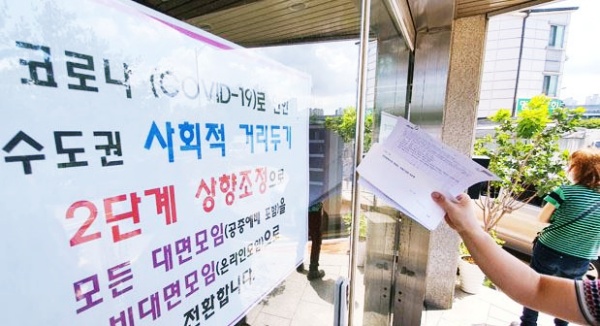 코로나 (COVID-19)로 인한
수도권 사회적 거리두기
2단계 상향조정으로
모든 대면모임(공중예배 포함)을
비대면모임(온라인모임)으로
전환합니다.